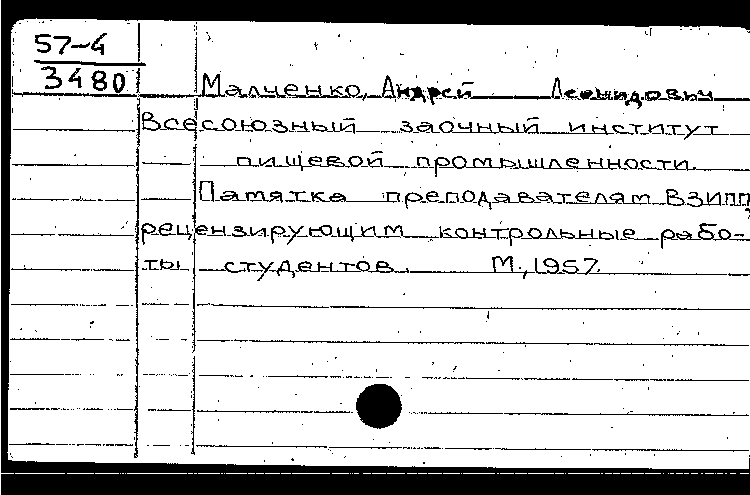 57-4
3480
Малченко, Андрей Леонидович
Всесоюзный заочный институт
пищевой промышленности.
Памятка преподавателям ВЗИПП,
рецензирующим контрольные рабо-
ты студентов. М., 1957.